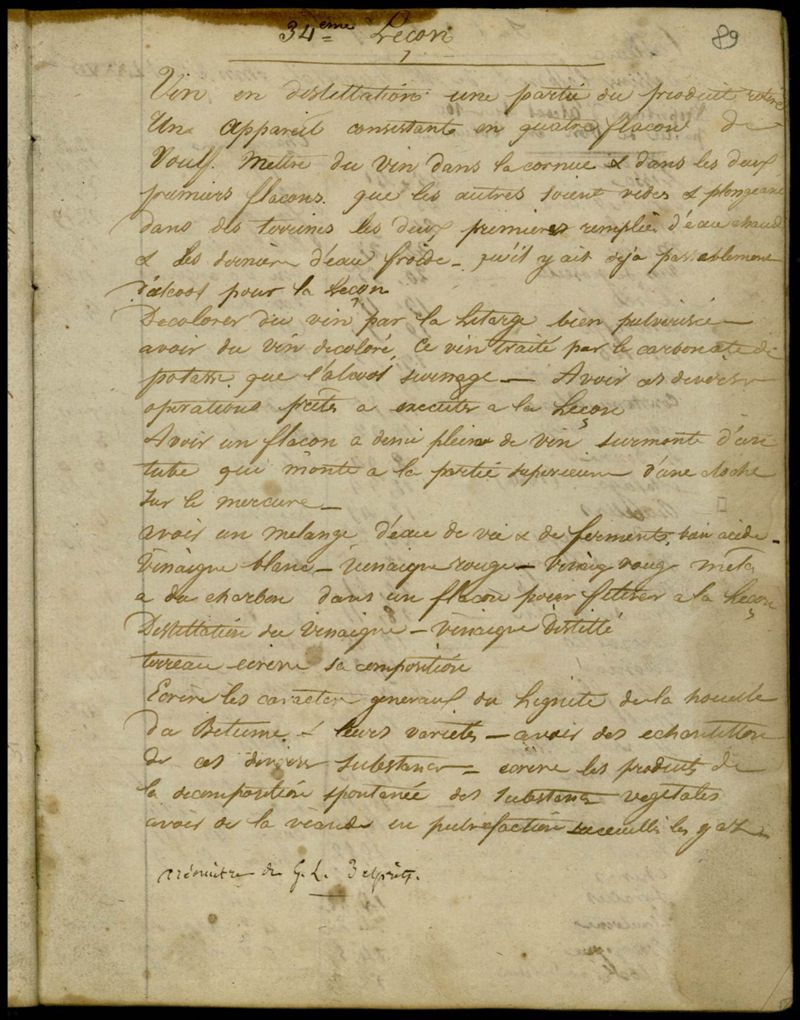 34ème Leçon
89
Vin en distillation une partie du produit retiré
Un appareil consistant en quatre flacon de
Voulf. Mettre du vin dans la cornue & dans les deux
premiers flacons. que les autres soient vides & plongeant
dans des terrines les deux premieres remplies d'eau chaude
& les derniere d'eau froide _ qu'il y ait deja passablement
d'alcool pour la Leçon
Decolorer du vin par la Litarge bien pulverisée _
avoir du vin decoloré, ce vin traité par le carbonate de
potasse que l'alcool surnage _ Avoir ces diverses
operations prêtes a executer a la Leçon
Avoir un flacon a demi plein de vin surmonté d'un
tube qui monte a la partie superieure d'une cloche
sur le mercure _
avoir un melange d'eau de vie & de ferment,
Vinaigre blanc _ Vinaigre rouge _ vinaig roug
a du charbon dans un flacon pour filtrer a la Leçon
Distillation du Vinaigre _ vinaigre Distillé
terreau ecrire sa composition
Ecrire les caracter generaux du Lignite de la houille
Du Betume & leurs varietés _ avoir des echantillon
de ces diverses substances _ ecrire les produits de
la decomposition spontanée des substances vegetales
avoir de la viande en putrefaction recueillir les gaz
de G. L.